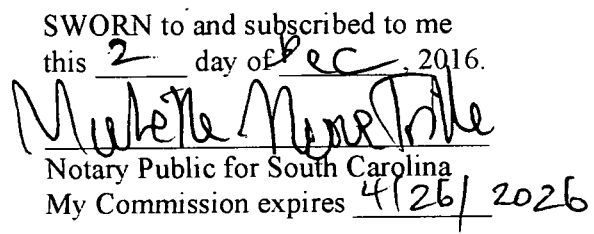 SWORN to and subscribed to me
this 2 day of Dec, 2016.
Notary Public for South Carolina
My Commission expires 4/26/2026